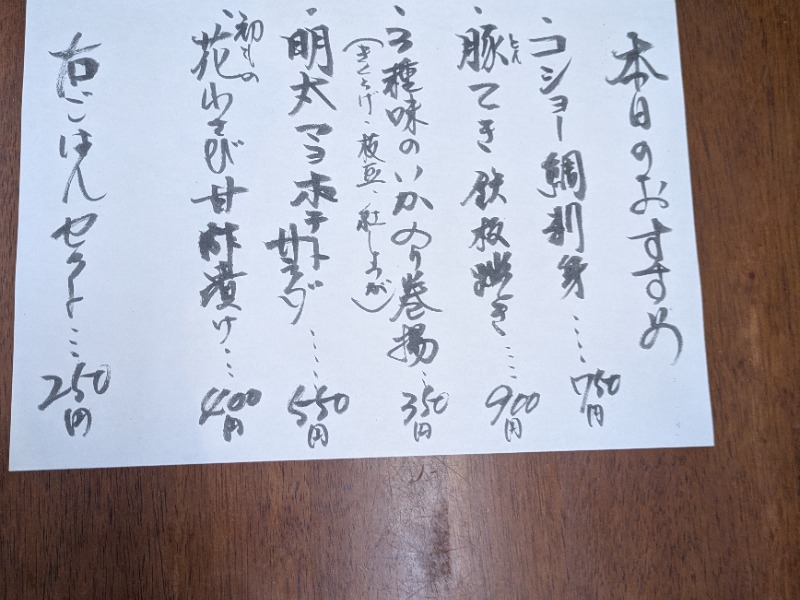 本日のおすすめ
・コショー鯛刺身…… 750円
・豚てき鉄板焼き…… 900円
とん
・3種味のいかのり巻揚… 350円
(きくらげ・枝豆・紅しょうが)
・明太マヨポテトサラダ…… 550円
初もの
・花わさび甘酢漬け… 400円
右ごはんセット… 250円